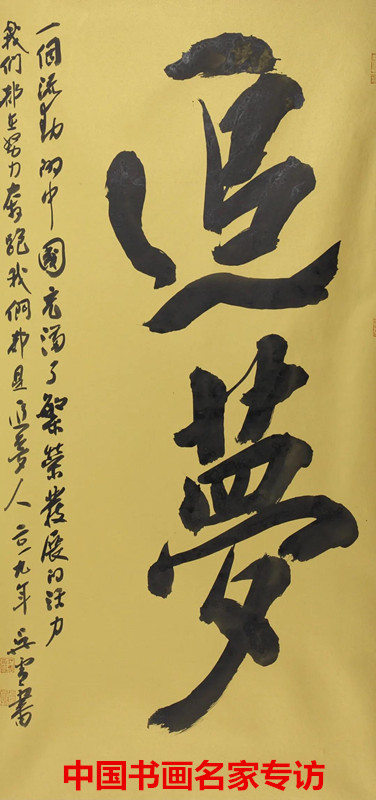 追夢
一個流動的中國充滿了繁榮發展的活力
我们都在努力奔跑我們都是追夢人 二〇一九年 書
中国书画名家专访